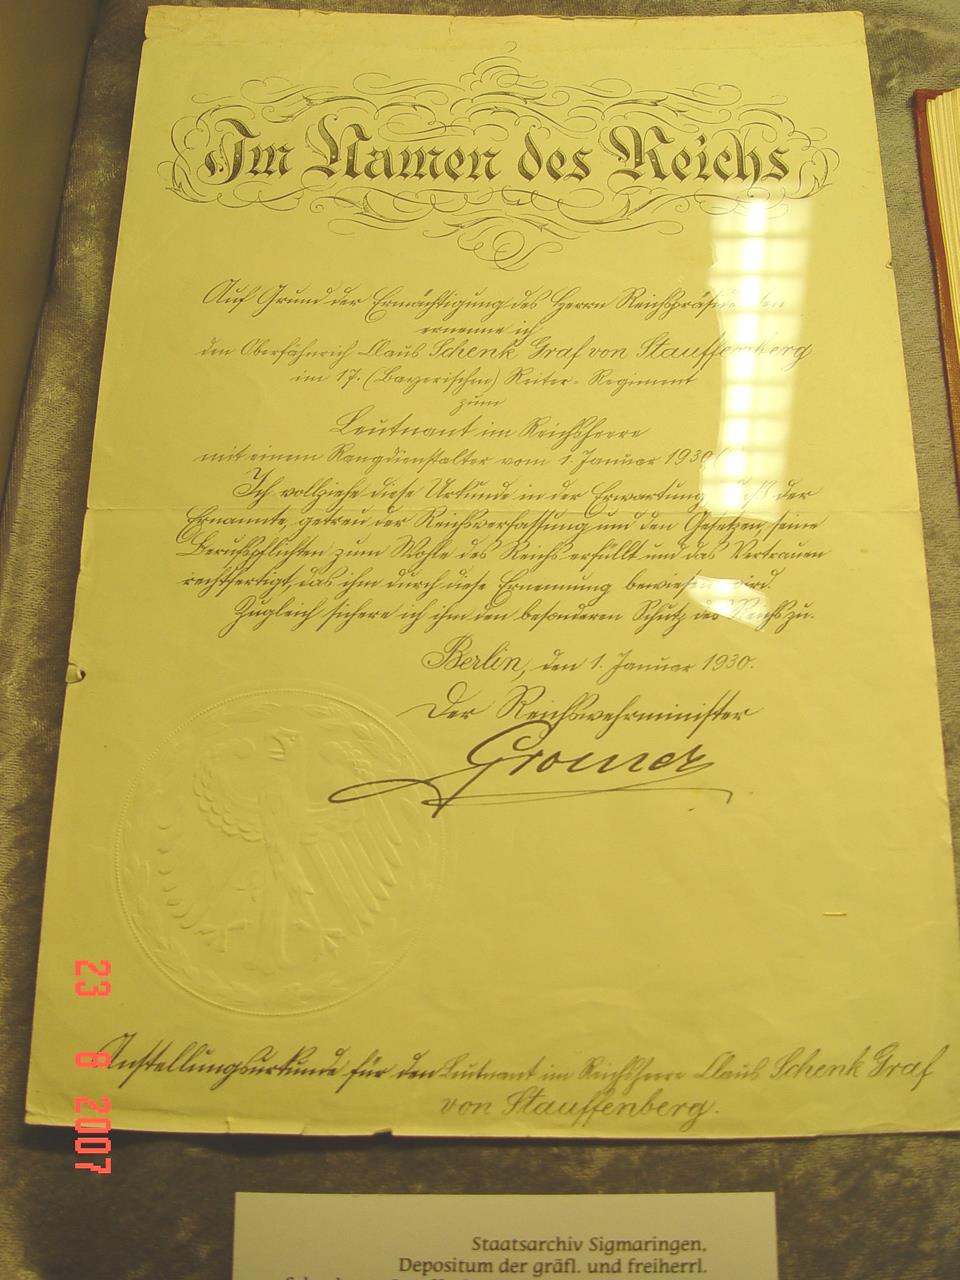 Im Namen des Reichs
Auf Grund der Ermächtigung des Herrn Reichspräsidenten
ernenne ich
den Oberfähnrich Claus Schenk Graf von Stauffenberg
im 17. (Bayerischen) Reiter-Regiment
zum
Leutnant im Reichsheere
mit einem Rangdienstalter vom 1. Januar 1930
Ich vollziehe diese Urkunde in der Erwartung, daß der
Ernannte, getreu der Reichsverfassung und den Gesetzen, seine
Berufspflichten zum Wohle des Reichs erfüllt und das Vertrauen
rechtfertigt, das ihm durch diese Ernennung bewiesen wird.
Zugleich sichere ich ihm den besonderen Schutz des Reichs zu.
Berlin, den 1. Januar 1930.
Der Reichswehrminister
Groener
Anstellungsurkunde für den Leutnant im Reichsheere Claus Schenk Graf
von Stauffenberg.
23 8 2007
Staatsarchiv Sigmaringen,
Depositum der gräfl. und freiherrl.